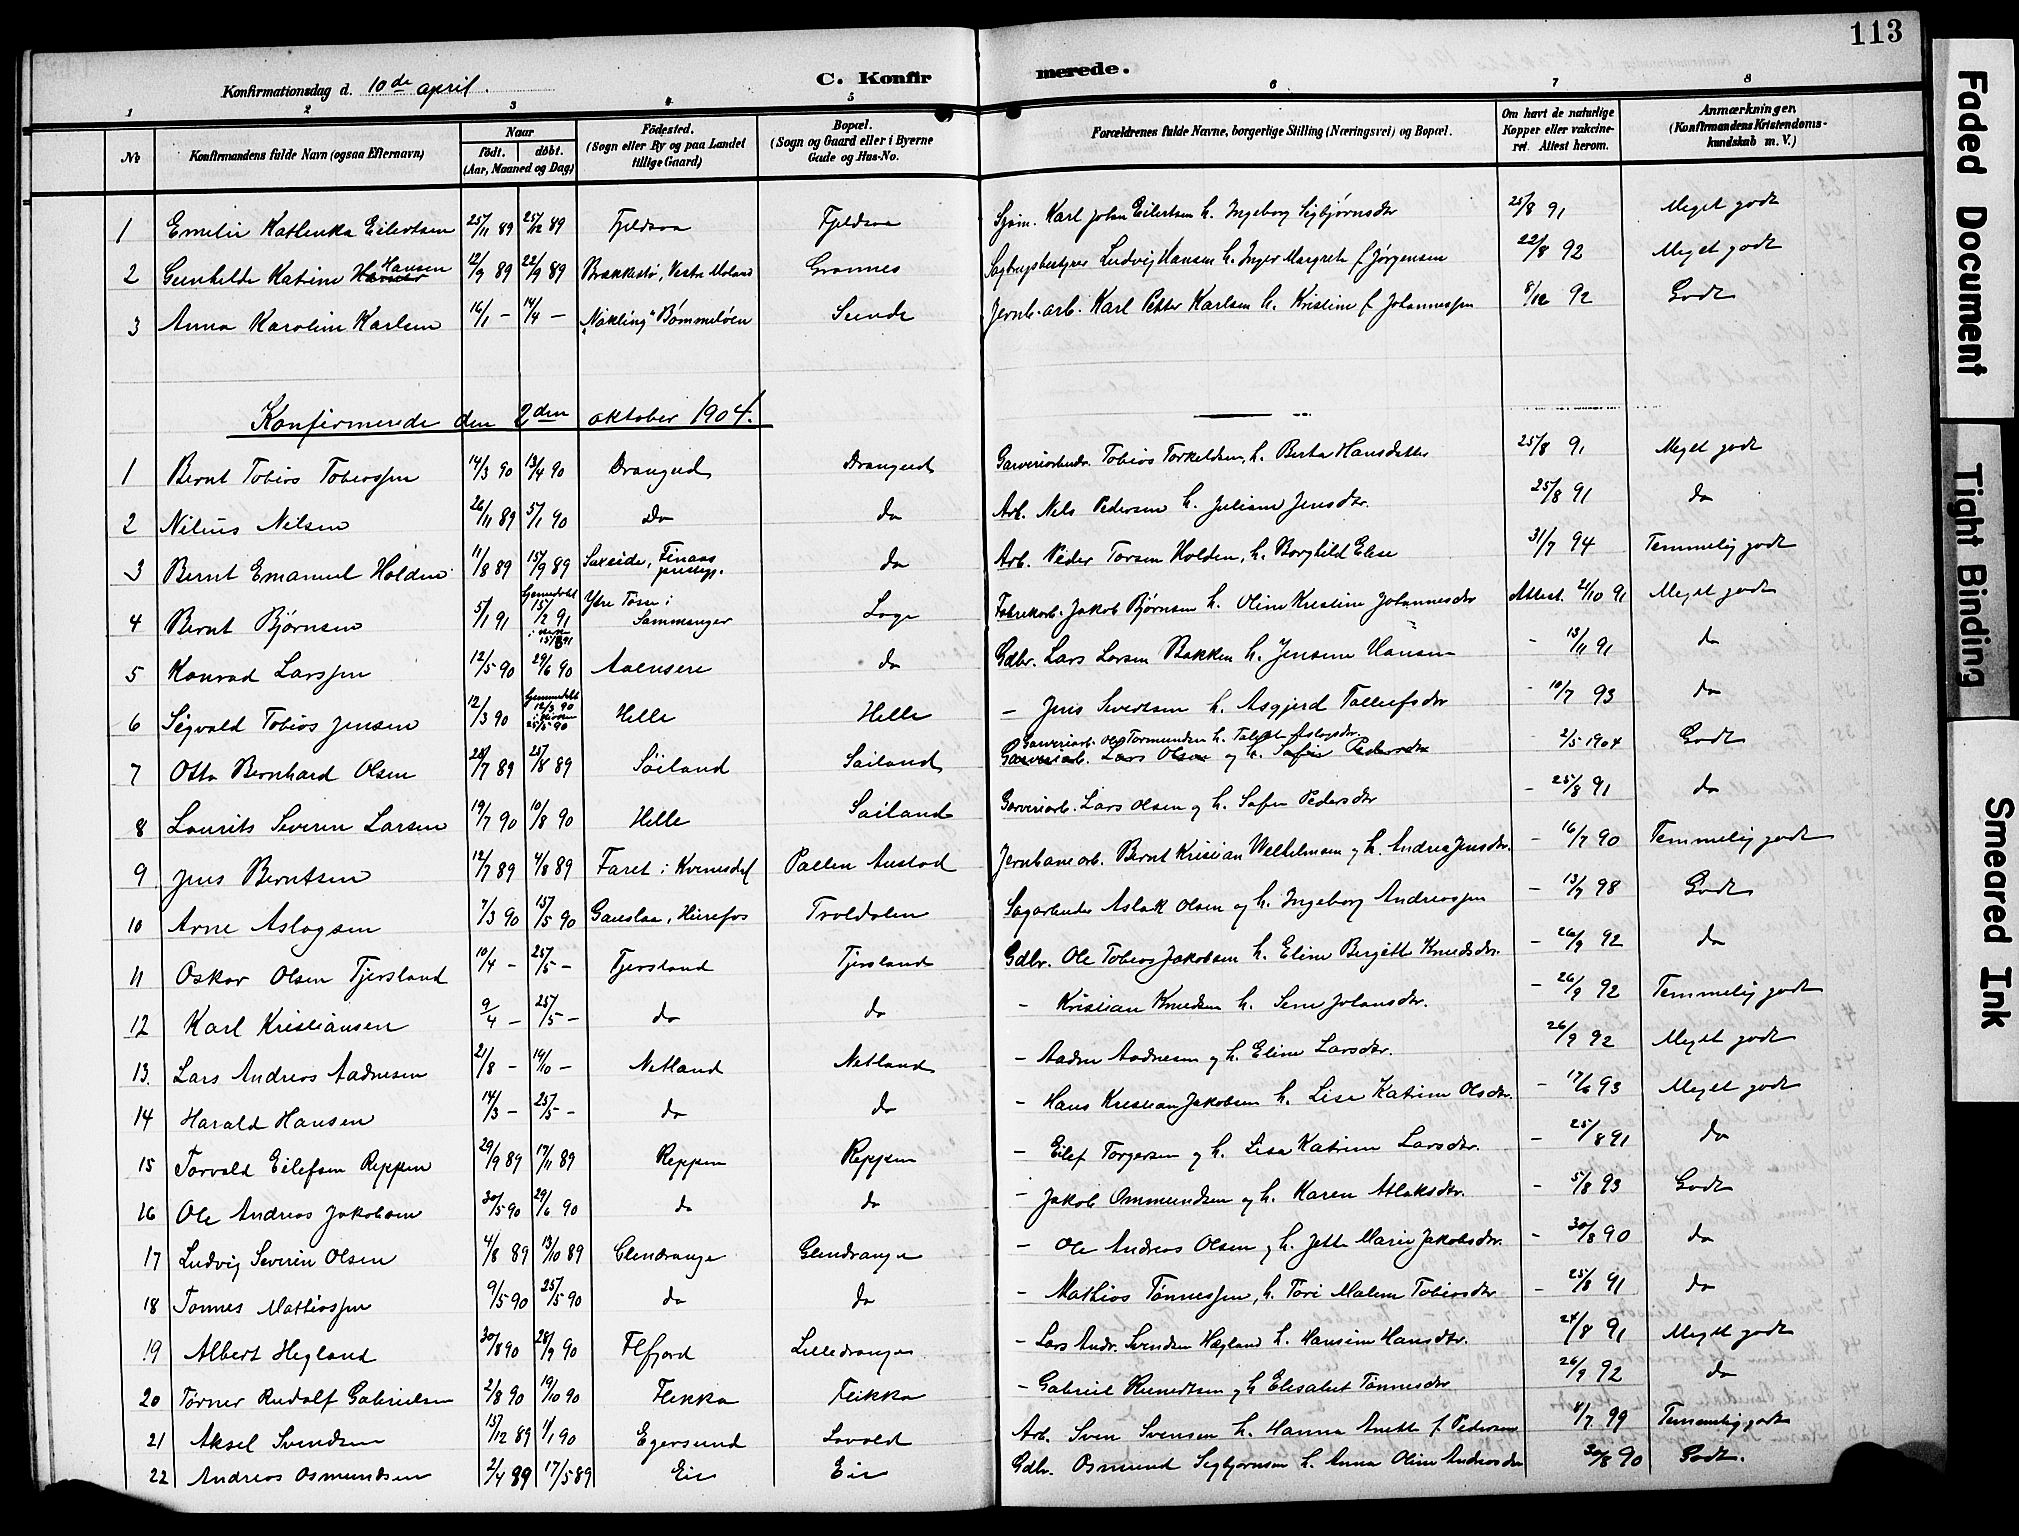 113
Konfirmationsdag d. 10de april.
C. Konfirmerede.
1 2 3 4 5 6 7 8
No
Konfirmandens fulde Navn (ogsaa Efternavn)
Naar født. døbt. (Aar, Maaned og Dag)
Födested. (Sogn eller By og paa Landet tillige Gaard)
Bopæl. (Sogn og Gaard eller i Byerne Gade og Hus-No.
Forældrenes fulde Navne, borgerlige Stilling (Næringsvei) og Bopæl.
Om havt de naturlige Kopper eller vakcineret. Attest herom.
Anmærkninger. (Konfirmandens Kristendomskundskab m. V.)
1 Emilie Kathenka Eilertsen 25/11 89 25/12 89 Fjeldsaa Fjeldsaa Sjøm. Karl Johan Eilertsen h. Ingeborg Sigbjørnsdtr 25/8 91 Meget godt
2 Gunhilde Katrine Hansen 12/9 89 22/9 89 Brækkestø, Vestre Moland Grannes Sagbrugsbestyrer Ludvig Hansen h. Inger Margrete f. Jørgensen 22/8 92 Meget godt
3 Anna Karoline Karlsen 16/1 - 14/4 - "Nøkling" Bømmeløen Sunde Jernb. arb. Karl Petter Karlsen h. Kristine f. Johannessen 8/12 92 Godt
Konfirmerede den 2den oktober 1904.
1 Bernt Tobias Tobiassen 14/3 90 13/4 90 Drangeid Drangeid Garveriarbeider Tobias Torkeldsen, h. Berta Hansdatter 25/8 91 Meget godt
2 Nilius Nilsen 26/11 89 5/1 90 Do do Arb. Nels Pedersen h. Juliane Jensdtr. 25/8 91 do
3 Bernt Emanuel Holden 11/8 89 15/9 89 Saxeide, Finaas prestegj. do Arb. Peder Torsen Holden, h. Borghild Elise 31/7 94 Temmelig godt
4 Bernt Bjørnsen 5/1 91 Hjemmedøbt 15/2 91 i kirken 15/3 91 Ytre Tosse i Sammanger Loge Fabrikarb. Jakob Bjørnsen h. Oline Kristine Johannesdtr Attest. 21/10 91 Meget godt
5 Konrad Larssen 12/5 90 29/6 90 Aalensere do Gdbr. Lars Larsen Bakken h. Jensine Hansen - 13/11 91 do
6 Sigvald Tobias Jensen 12/3 90 Hjemmedøbt 12/3 90 i kirken 25/5 90 Helle Helle - Jens Severtsen h. Asgjerd Tollefsdtr - 10/7 93 do
7 Otto Bernhard Olsen 28/7 89 25/8 89 Söiland Söiland Garveriarb. Ole Tormundsen h. Talet Aslagsdtr. Garveriarb. Lars Olsen og h. Sofie Pedersdtr - 2/5 1904 Godt
8 Laurits Severin Larsen 19/7 90 10/8 90 Helle Söiland Garveriarb. Lars Olsen og h. Sofie Pedersdtr - 25/8 91 do
9 Jens Berntsen 12/7 89 4/8 89 Faret i Kvinesdal Pallen Austad Jernbanearb. Bernt Kristian Welhelmsen og h. Andrea Jensdtr. - 16/7 90 Temmelig godt
10 Arne Aslagsen 7/3 90 15/5 90 Gauslaa, Herefos Troldalen Sagarbeider Aslak Olsen og h. Ingeborg Andreassen - 13/7 98 Godt
11 Oskar Olsen Tjersland 10/4 - 25/5 - Tjersland Tjersland Gdbr. Ole Tobias Jakobsen h. Eline Bergitte Knudsdtr. - 26/9 92 do
12 Karl Kristiansen 9/4 - 25/5 - do do - Kristian Knudsen h. Sene Johansdtr. - 26/9 92 Temmelig godt
13. Lars Andreas Aadnesen 21/8 - 19/10 - Netland Netland - Aadne Aadnesen og h. Eline Larsdtr. 26/9 92 Meget godt
14 Harald Hansen 14/3 - 25/5 - do do - Hans Kristian Jakobsen h. Lise Katrine Olsdtr. - 17/6 93 Meget godt
15 Torvald Eilefsen Reppen 29/9 89 17/11 89 Reppen Reppen - Eilef Torgersen og h. Lisa Katrine Larsdtr. - 25/8 91 do
16 Ole Andreas Jakobsen 30/5 90 29/6 90 do do - Jakob Ommundsen og h. Karen Atlaksdtr. - 5/8 93 Godt
17 Ludvig Severin Olsen 4/8 89 13/10 89 Glendrange Glendrange - Ole Andreas Olsen og h. Jette Marie Jakobsdtr. - 30/8 90 do
18 Tønnes Mathiassen 9/5 90 25/5 90 do do - Mathias Tønnessen, h. Tori Malene Tobiasdtr - 25/8 91 do
19 Albert Hegland 30/8 90 28/9 90 Flfjord Lilledrange - Lars Andr. Svendsen Hægland h. Hansine Hansdtr. 24/8 91 Meget godt
20 Tørner Rudolf Gabrielsen 2/8 90 19/10 90 Flikka Flikka - Gabriel Reinertsen og h Elisabet Tønnesdtr 26/9 92 do
21 Aksel Svendsen 15/12 89 1/1 90 Egersund Lovold Arb. Sven Svensen h. Hanna Anette f. Pedersen 8/7 99 Temmelig godt
22 Andreas Osmundsen 2/4 89 17/5 89 Eie Eie Gdbr. Osmund Sigbjørnsen h. Anna Oline Andreasdtr 30/8 90 Godt.
Faded Document
Tight Binding
Smeared Ink